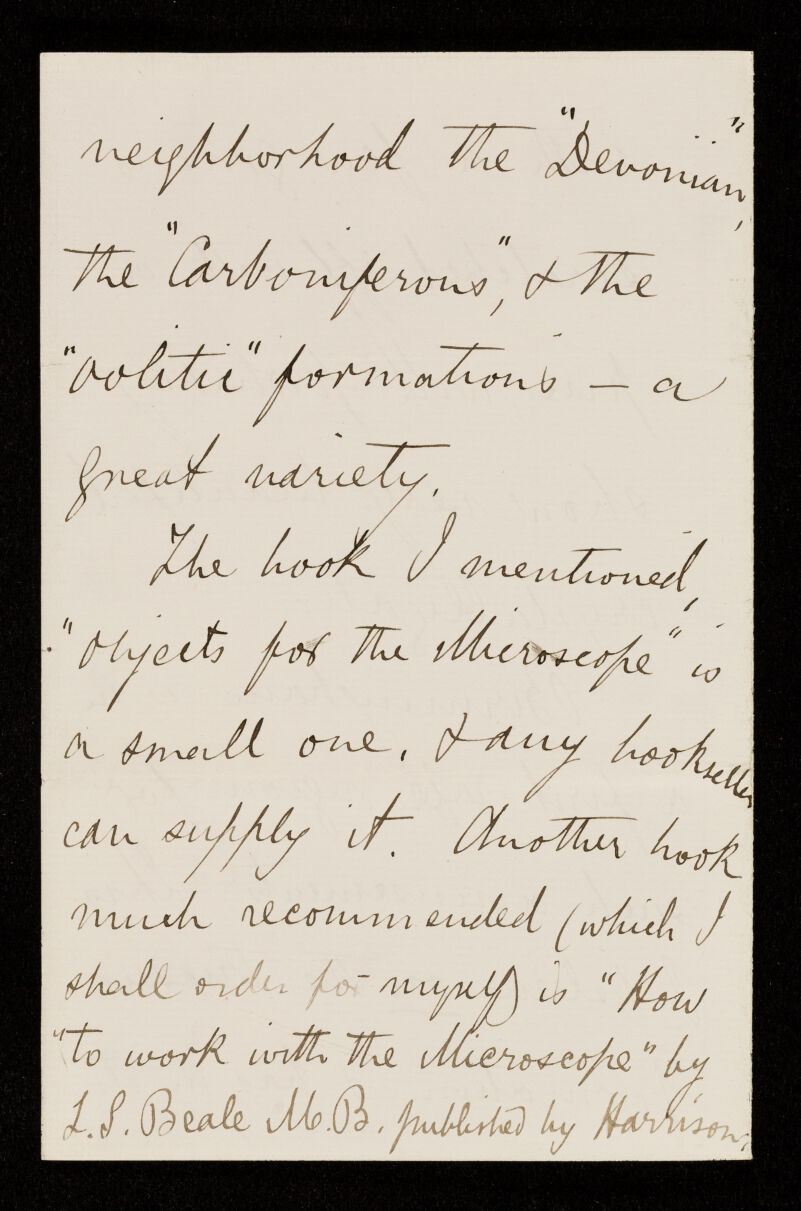 neighborhood the "Devonian",
the "Carboniferous", & the
"oolitic" formations — a
great variety.
The book I mentioned,
"objects for the Microscope" is
a small one, & any bookseller
can supply it. Another book
much recommended (which I
shall order for myself) is "How
"to work with the Microscope" by
L.S. Beale M.B. published by Harrison,